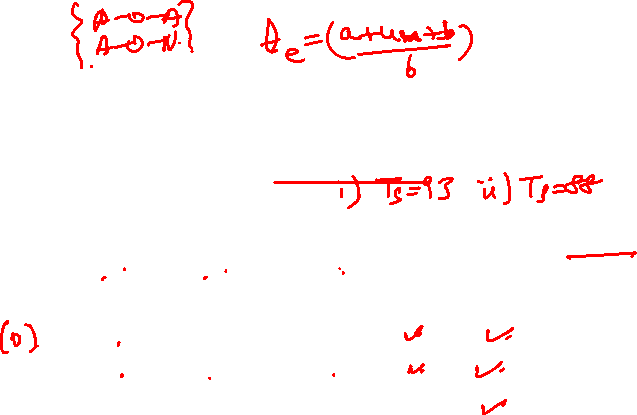 A-O-A
A-O-N
te = (a+4m+b)
6
i) Ts=93 ii) Ts=88
(0)